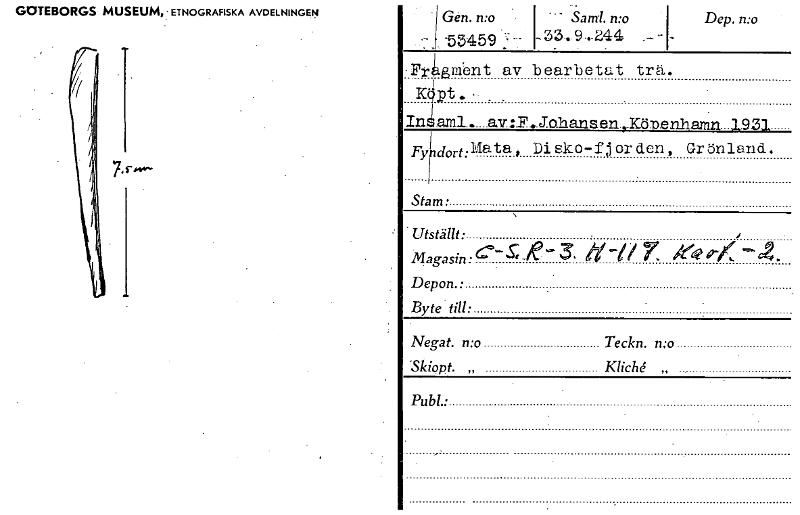 GÖTEBORGS MUSEUM, ETNOGRAFISKA AVDELNINGEN
Gen. n:o Saml. n:o Dep. n:o
53459 33.9.244
Fragment av bearbetat trä.
Köpt.
Insaml. av:F.Johansen,Köpenhamn 1931
Fyndort: Mata, Disko-fjorden, Grönland.
7.5 cm
Stam:
Utställt:
Magasin: C-S.R-3. H-117. Kart.-2.
Depon.:
Byte till:
Negat. n:o Teckn. n:o
Skiopt. „ Kliché „
Publ.: